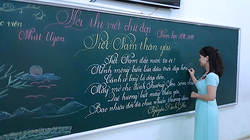 Hội thi viết chữ đẹp
viên
Năm học 2018-2019
Nhật Uyên
Việt Nam thân yêu
Việt Nam đất nước ta ơi!
Mênh mông biển lúa đâu trời đẹp hơn
Cánh cò bay lả dập dờn,
Mây mờ che đỉnh Trường Sơn sớm chiều
Quê hương biết mấy thân yêu
Bao nhiêu đời đã chịu nhiều thương đau
Nguyễn Đình